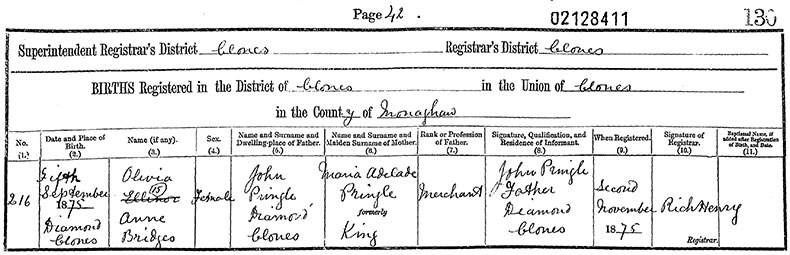 Page 42. 02128411 130
Superintendent Registrar's District Clones Registrar's District Clones
BIRTHS Registered in the District of Clones in the Union of Clones
in the County of Monaghan
No. (1.) Date and Place of Birth. (2.) Name (if any). (3.) Sex. (4.) Name and Surname and Dwelling-place of Father. (5.) Name and Surname and Maiden Surname of Mother. (6.) Rank or Profession of Father. (7.) Signature, Qualification, and Residence of Informant. (8.) When Registered. (9.) Signature of Registrar. (10.) Baptismal Name, if added after Registration of Birth, and Date. (11.)
216
Fifth
September
1875
Diamond
Clones
Olivia
Ellinor
Anne
Bridges
Female
John
Pringle
Diamond
Clones
Maria Adelade
Pringle
formerly
King
Merchant
John Pringle
Father
Diamond
Clones
Second
November
1875
Rich Henry
Registrar.